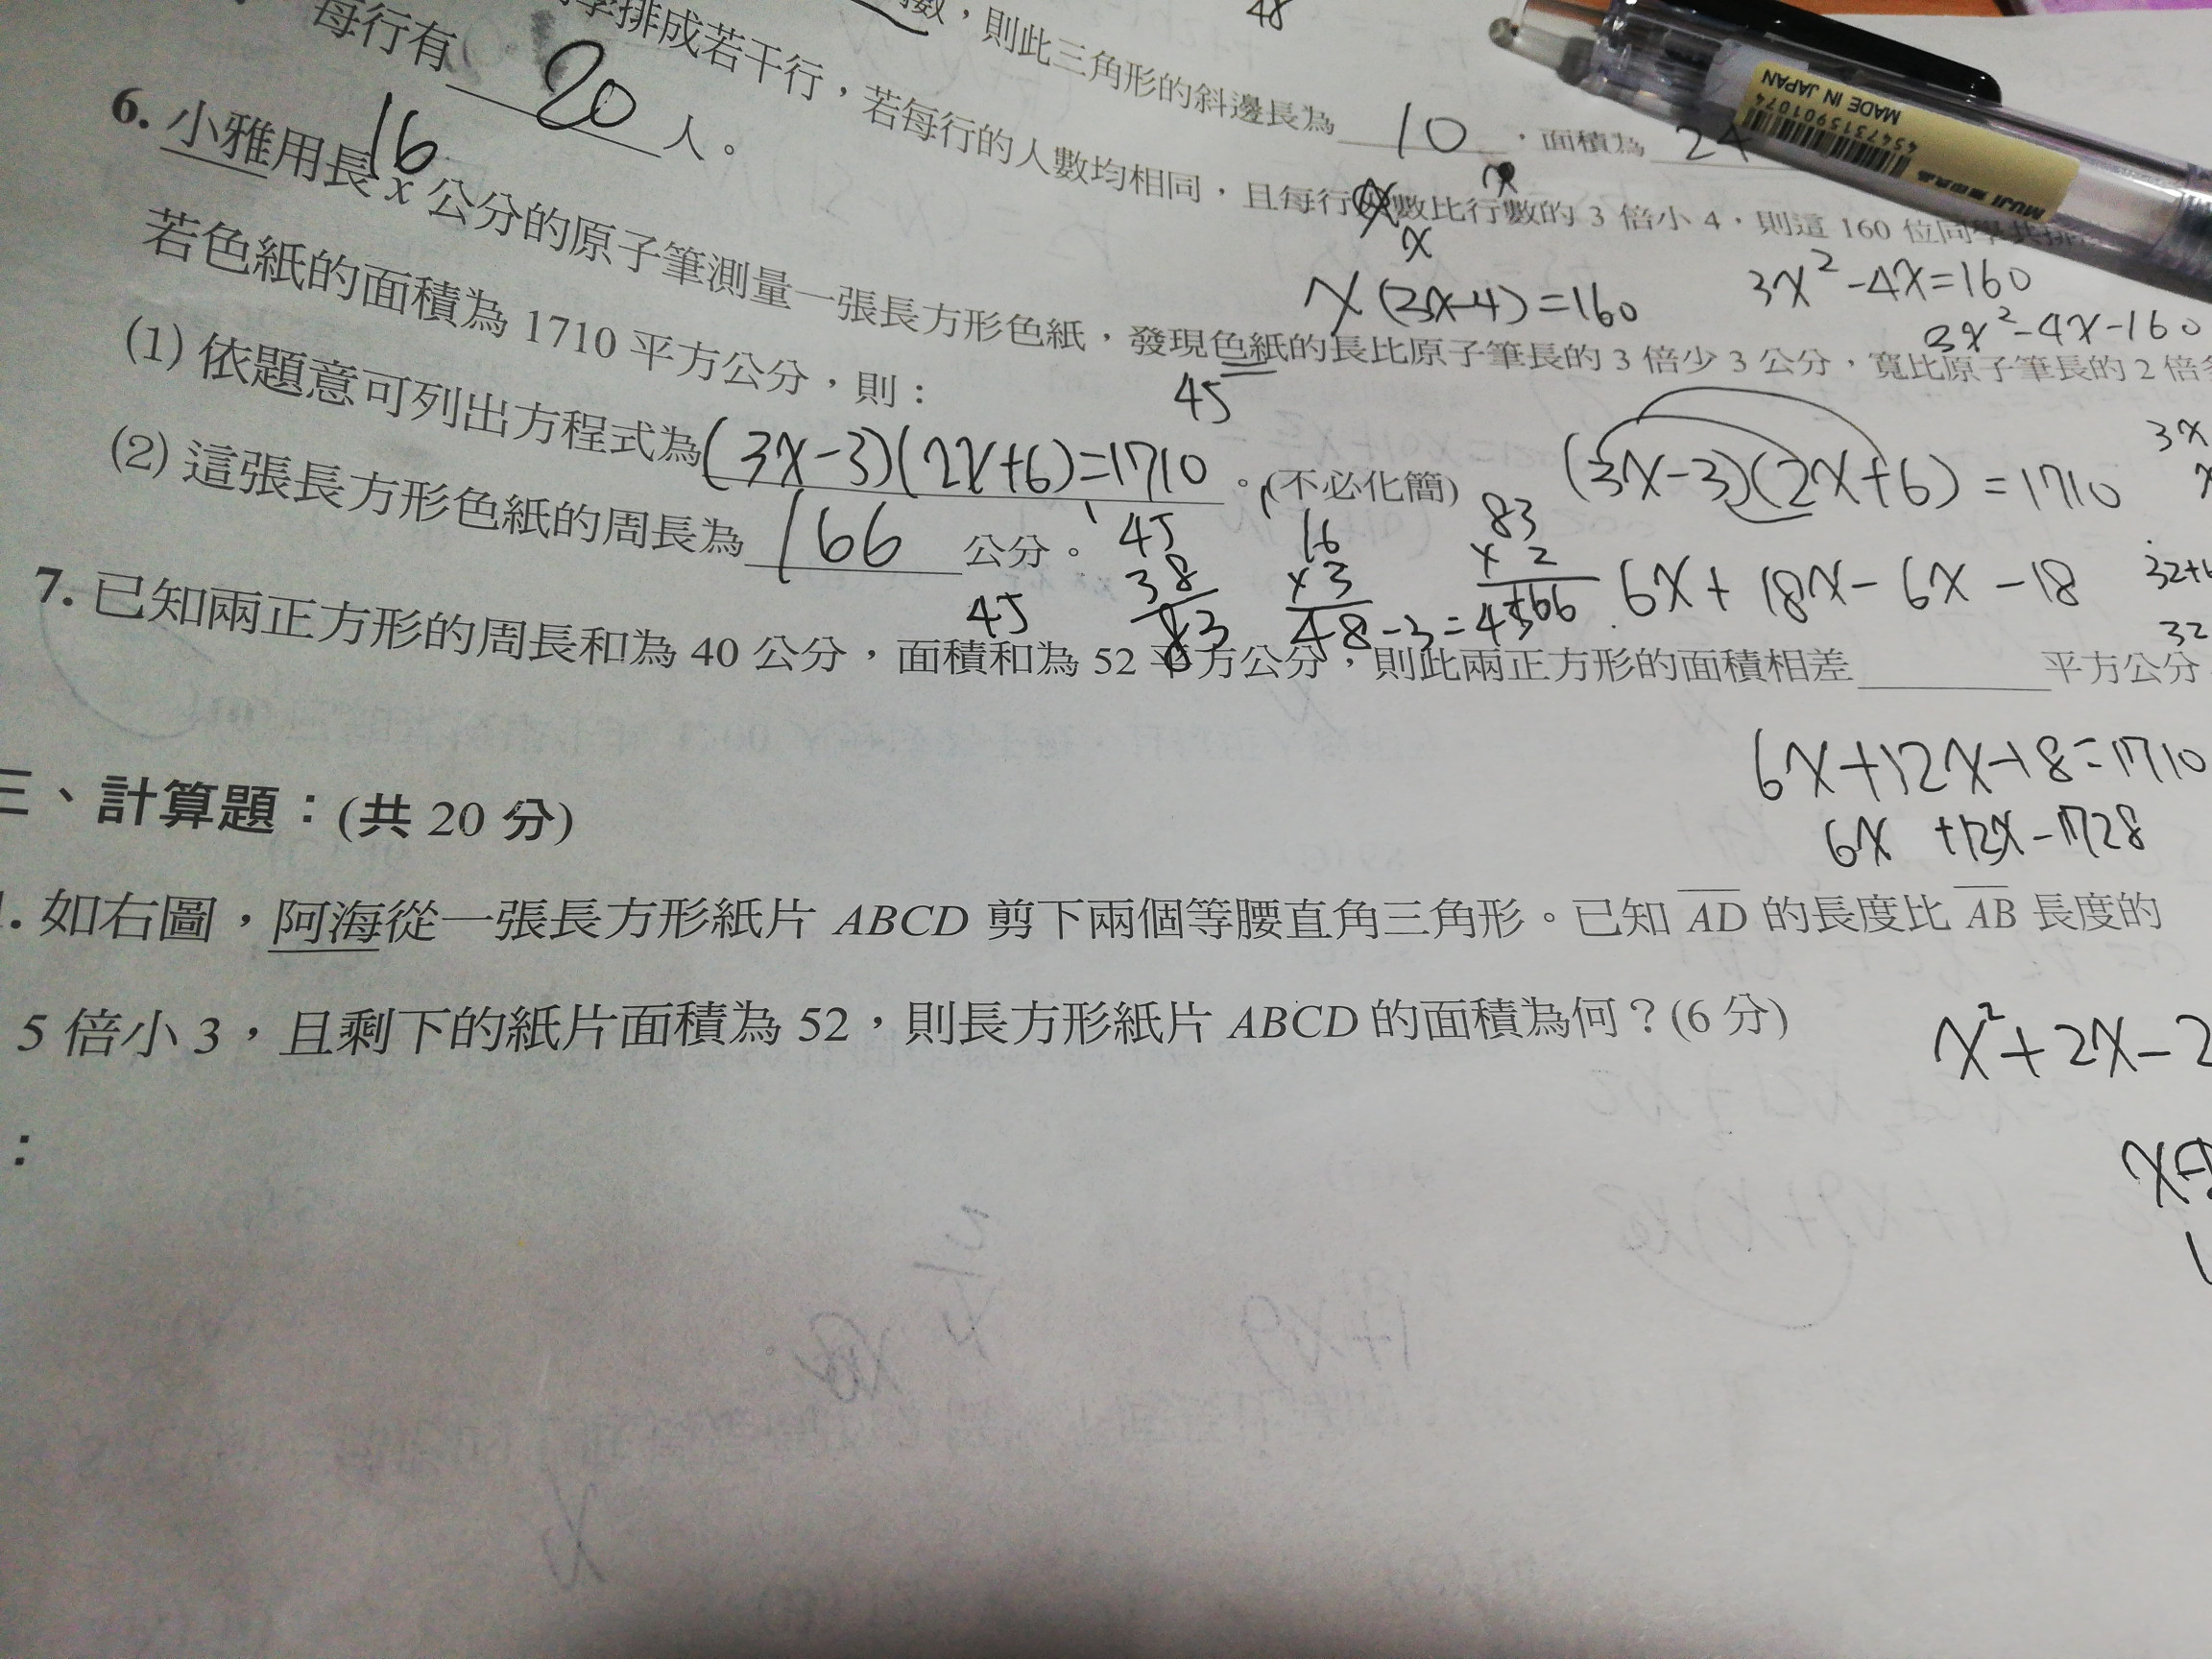 數，則此三角形的斜邊長為 10 ，面積為 24
48
學排成若干行，若每行的人數均相同，且每行人數比行數的 3 倍小 4，則這 160 位同學共排
每行有 20 人。
x
x
x(3x-4)=160
3x²-4x=160
3x²-4x-160
6. 小雅用長 x 公分的原子筆測量一張長方形色紙，發現色紙的長比原子筆長的 3 倍少 3 公分，寬比原子筆長的 2 倍多
16
若色紙的面積為 1710 平方公分，則：
45
(1) 依題意可列出方程式為 (3x-3)(2x+6)=1710 。(不必化簡)
(3x-3)(2x+6)=1710
3x
(2) 這張長方形色紙的周長為 166 公分。
45
38
83
16
×3
48-3=45
83
×2
166
6x+18x-6x-18
45
32
7. 已知兩正方形的周長和為 40 公分，面積和為 52 平方公分，則此兩正方形的面積相差 平方公分
6x+12x-18=1710
6x +12x-1728
三、計算題：(共 20 分)
1. 如右圖，阿海從一張長方形紙片 ABCD 剪下兩個等腰直角三角形。已知 AD 的長度比 AB 長度的
5 倍小 3，且剩下的紙片面積為 52，則長方形紙片 ABCD 的面積為何？(6 分)
x²+2x-2
：
MUJI 無印良品
4547315901074
MADE IN JAPAN